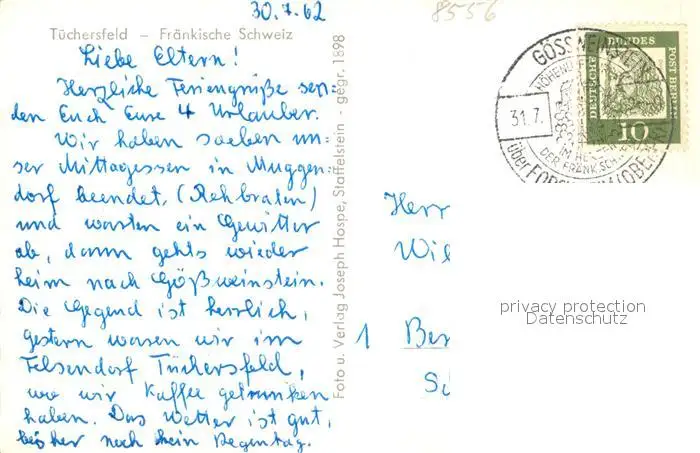 30.7.62
8556
Tüchersfeld – Fränkische Schweiz
Liebe Eltern!
Herzliche Feriengrüße sen-
den Euch Eure 4 Urlauber.
Wir haben soeben un-
ser Mittagessen in Muggen-
dorf beendet, (Rehbraten)
und warten ein Gewitter
ab, dann gehts wieder
heim nach Gößweinstein.
Die Gegend ist herrlich,
gestern waren wir im
Felsendorf Tüchersfeld,
wo wir Kaffee getrunken
haben. Das Wetter ist gut,
bisher noch kein Regentag.
Foto u. Verlag Joseph Hospe, Staffelstein - gegr. 1898
GÖSSWEINSTEIN
31.7.
IM HERZEN
DER FRÄNK.SCHWEIZ
über FORCHHEIM (OBERFR
DEUTSCHE BUNDES POST BERLIN
10
Herr
Wil
1 Ber
privacy protection
Datenschutz